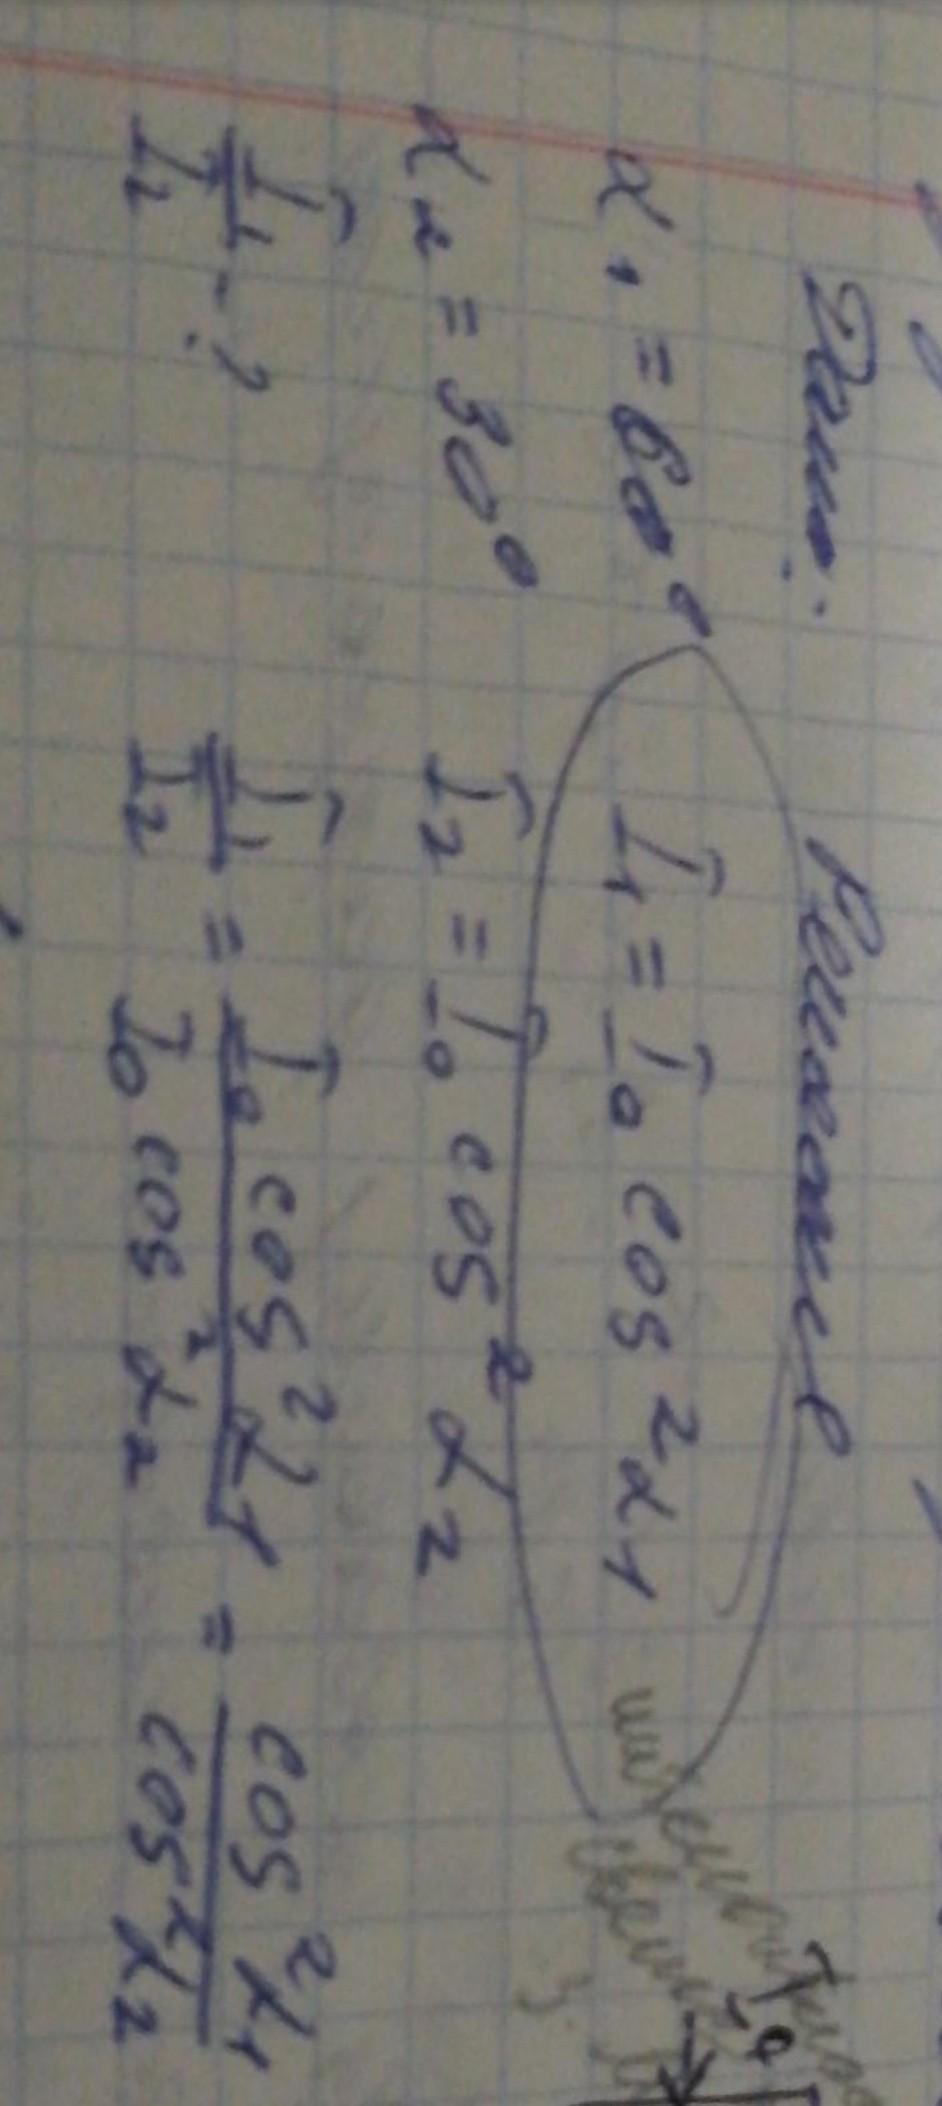 Дано:
Решение
α₁ = 60°
I₁ = I₀ cos²α₁
α₂ = 30°
I₂ = I₀ cos²α₂
I₁/I₂ - ?
I₁/I₂ = I₀ cos²α₁ / I₀ cos²α₂ = cos²α₁ / cos²α₂